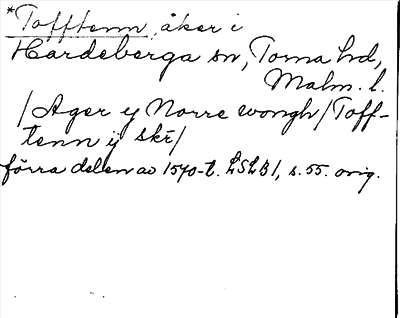 *Tofftenn, åker i
Hardeberga sn, Torna hd,
Malm. l.
/Ager ij Norre wongh/Toff-
tenn ij skr/
förra delen av 1570-t. LSLB1, s. 55. orig.